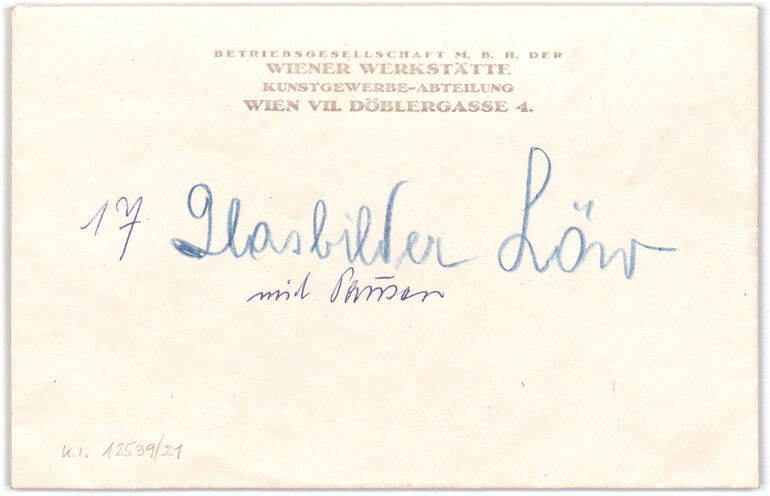 BETRIEBSGESELLSCHAFT M. B. H. DER
WIENER WERKSTÄTTE
KUNSTGEWERBE-ABTEILUNG
WIEN VII. DÖBLERGASSE 4.
17 Glasbilder Löw
mit Pausen
K.I. 12539/21